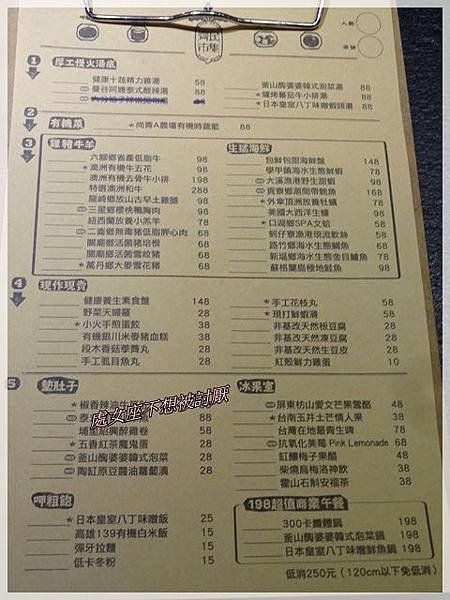 人數
桌號
齊民市集
1 厚工慢火湯底
健康十蔬精力雞湯 58
曼谷阿嬤泰式酸辣湯 88
釜山醄婆婆韓式泡菜湯 88
爐烤蕃茄牛小排湯 88
★日本皇室八丁味噌蝦頭湯 88
2 有機菜
★尚青A農場有機時蔬籃 88
3 雞豬牛羊
六腳鄉省產低脂牛 98
★澳洲有機牛五花 98
澳洲有機去骨牛小排 198
特選澳洲和牛 288
龍崎鄉放山古早土雞腿 98
三星鄉櫻桃鴨胸肉 98
紐西蘭放養小羔羊 78
二崙鄉無毒豬低脂胛心肉 68
關廟鄉活菌豬培根 68
關廟鄉活菌雪紋豬 68
★萬丹鄉大麥雪花豬 68
生猛海鮮
包鮮包甜海鮮盤 148
學甲鎮海水生態鮮蝦 78
★大溪漁港野生甜蝦 98
貢寮鄉潮間帶鮑魚 168
★外傘頂洲放養牡蠣 78
美國大西洋生蠔 98
★口湖鄉SPA文蛤 58
蚵仔寮漁港現流軟絲 58
路竹鄉海水生態鯛魚 68
新塭鄉海水生態金目鱸魚 58
蘇格蘭島極地鮭魚 98
4 現作現賣
健康養生素食盤 148
野菜天婦羅 28
★小火手煎蛋餃 38
有機銀川米麥豬血糕 38
段木香菇荸薺丸 28
手工虱目魚丸 28
★手工花枝丸 58
★現打鮮蝦滑 58
非基改天然板豆腐 28
非基改天然凍豆腐 28
非基改天然生豆皮 28
紅殼鮮力雞蛋 10
5 墊肚子
★椒香辣油牛
88
埔里紹興醉雞卷 58
★五香紅茶魔鬼蛋 28
釜山醄婆婆韓式泡菜 28
陶缸原豆醬油蘿蔔漬 28
處女座不想被討厭
冰果室
屏東枋山愛文芒果雪酪 48
★台南玉井土芒情人果 38
台灣在地最青生啤 78
抗氧化美莓 Pink Lemonade 68
缸釀梅子果醋 48
柴燒烏梅洛神飲 38
霍山石斛安福茶 38
呷粗飽
★日本皇室八丁味噌飯 25
高雄139有機白米飯 15
彈牙拉麵 15
低卡冬粉 15
198超值商業午餐
300卡纖體鍋 198
釜山醄婆婆韓式泡菜鍋 198
日本皇室八丁味噌鮮魚鍋 198
低消250元（120cm以下免低消）